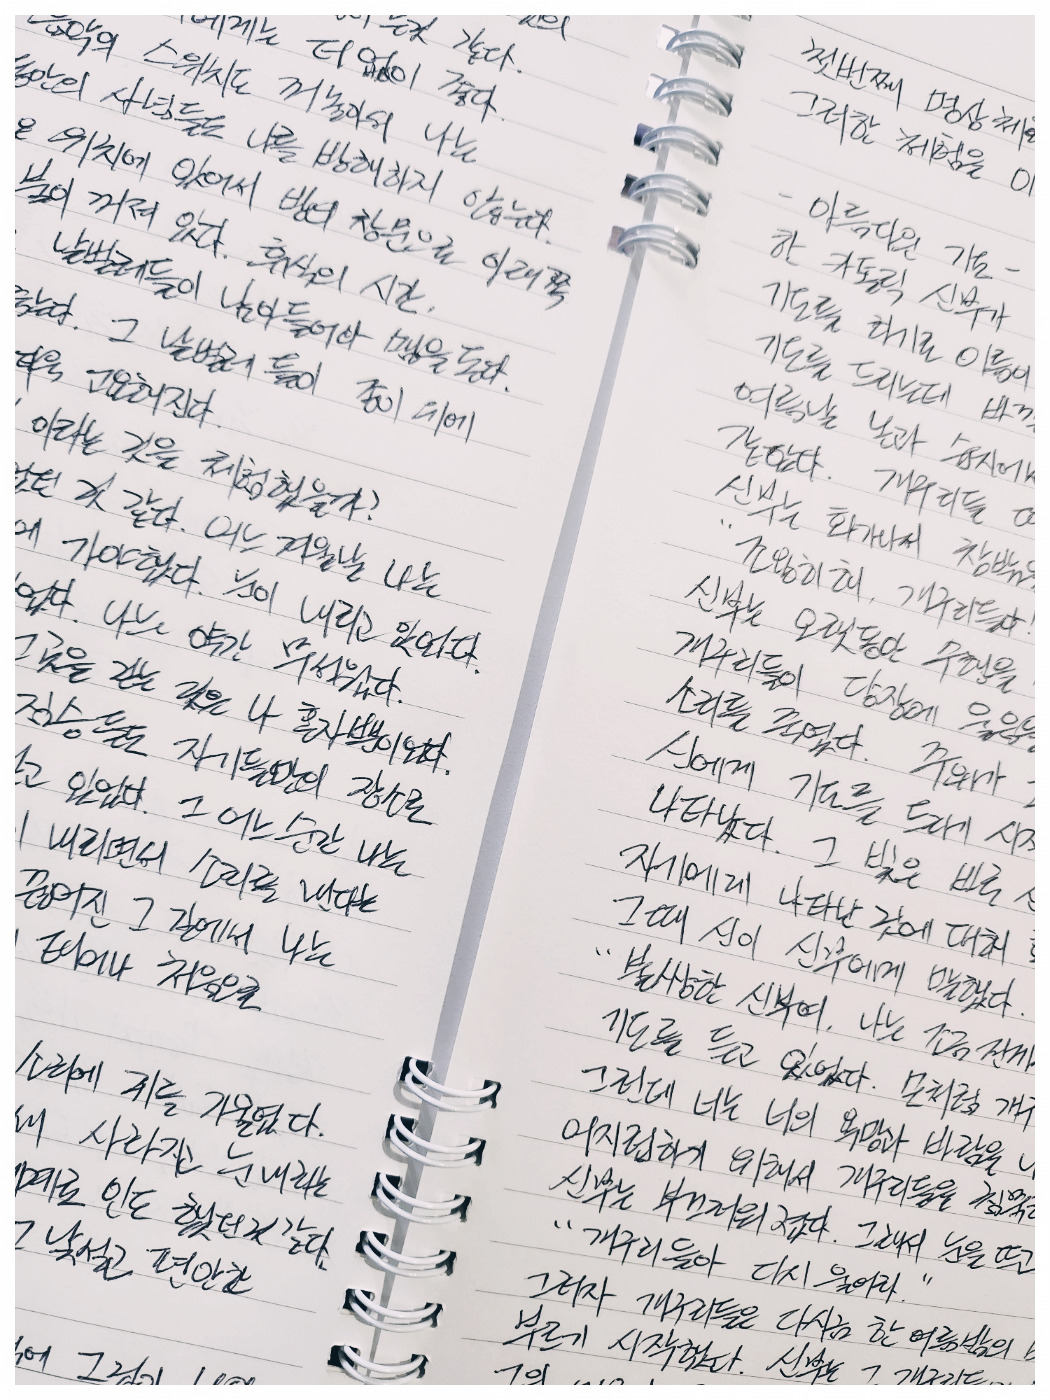 에게는 더없이 좋다.
음악의 스위치도 꺼놓아서 나는
동안의 사념들도 나를 방해하지 않는다.
위치에 있어서 밤의 창문으로 아래쪽
불이 꺼져 있다. 휴식의 시간.
날벌레들이 날아들어와 맴을 돈다.
그 날벌레들이 종이 위에
고요해진다.
이라는 것을 체험했을까?
것 같다. 어느 겨울날 나는
에 가야했다. 눈이 내리고 있었다.
나는 약간 무서웠다.
그곳을 걷는 것은 나 혼자뿐이었다.
짐승들도 자기들만의 장소로
있었다. 그 어느 순간 나는
내리면서 소리를 낸다는
끊어진 그 길에서 나는
태어나 처음으로
소리에 귀를 기울였다.
사라지고 눈 내리는
인도 했던것 같다.
그 낯설고 편안한
첫번째 명상 체험
그러한 체험을
- 아름다운 기도 -
한 카톨릭 신부가
기도를 하기로 이름이
기도를 드리는데 바깥
여름날 논과 습지에서
같았다. 개구리들
신부는 화가나서 창밖을
"조용히 해, 개구리들아!
신부는 오랫동안 수련을
개구리들이 당장에 울음을
소리를 죽였다. 주위가
신에게 기도를 드리기 시작
나타났다. 그 빛은 바로 신
자기에게 나타난 것에 대해
그때 신이 신부에게 말했다.
"불쌍한 신부여, 나는 조금 전까지
기도를 듣고 있었다. 모처럼 개구
그런데 너는 너의 욕망과 바람을
어지럽히기 위해서 개구리들을 침묵
신부는 부끄러워졌다. 그래서 눈을 뜨고
"개구리들아 다시 울어라."
그러자 개구리들은 다시금 한 여름밤의
부르기 시작했다. 신부는 그 개구리들